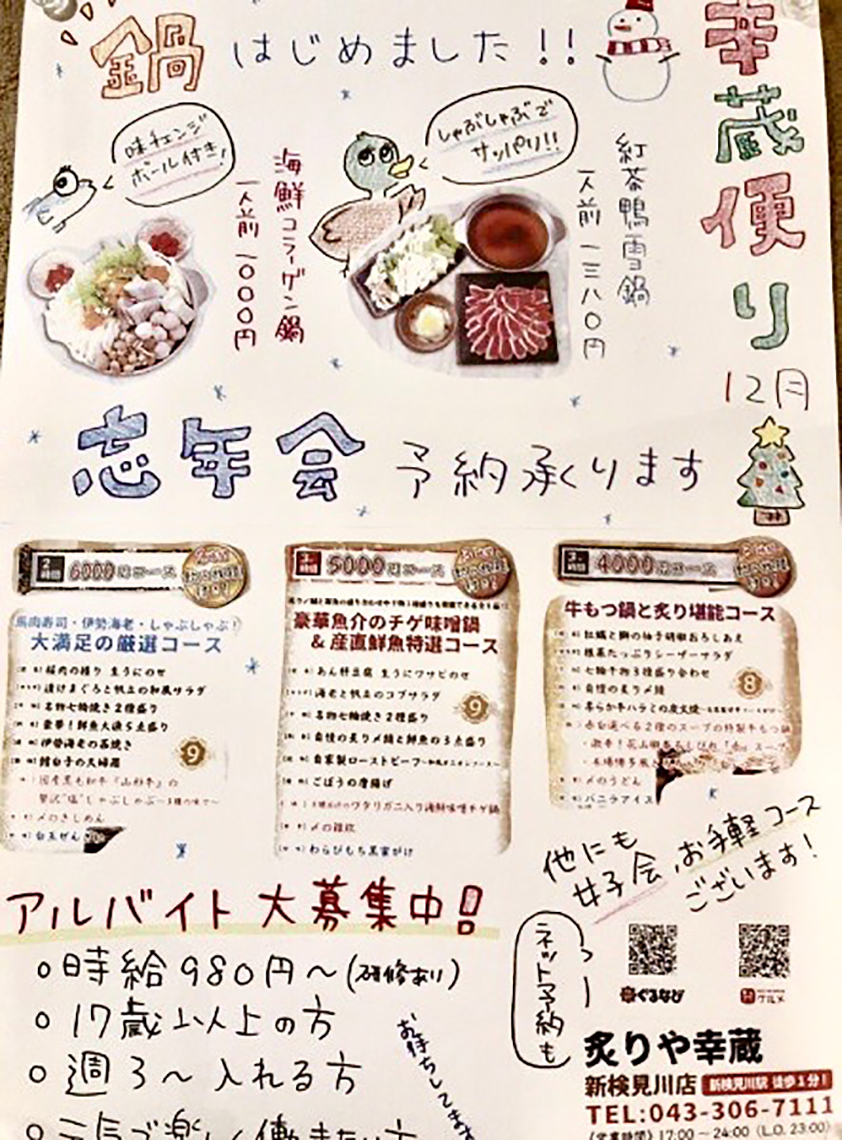 幸蔵便り
12月
鍋はじめました!!
味チェンジ
ボール付き!
海鮮コラーゲン鍋
一人前 一〇〇〇円
しゃぶしゃぶで
サッパリ!!
紅茶鴨雪鍋
一人前 一三八〇円
忘年会 予約承ります
6000円コース
馬肉寿司・伊勢海老・しゃぶしゃぶ!
大満足の厳選コース
桜肉の握り 生うにのせ
漬けまぐろと帆立の和風サラダ
名物七輪焼き2種盛り
豪華!鮮魚大漁5点盛り
伊勢海老の姿焼き
国産黒毛和牛『山形牛』の
贅沢"塩"しゃぶしゃぶ
〆のきしめん
白玉ぜん
9
5000円コース
豪華魚介のチゲ味噌鍋
&産直鮮魚特選コース
あん肝豆腐 生うにワサビのせ
海老と帆立のコブサラダ
名物七輪焼き2種盛り
自慢の炙り〆鯖と鮮魚の3点盛り
自家製ローストビーフ
ごぼうの唐揚げ
ワタリガニ入り海鮮味噌チゲ鍋
〆の雑炊
わらびもち黒蜜がけ
9
4000円コース
牛もつ鍋と炙り堪能コース
根菜たっぷりシーザーサラダ
七輪干物3種盛り合わせ
自慢の炙り〆鯖
柔らか牛ハラミの炭火焼
選べる2種のスープの特製牛もつ鍋
〆のうどん
バニラアイス
8
他にも
女子会、お手軽コース
ございます!
アルバイト大募集中!!
○時給980円〜(研修あり)
○17歳以上の方
○週3〜入れる方
○元気で楽しく働きたい方
お待ちしてます
ネット予約も
ぐるなび
グルメ
炙りや幸蔵
新検見川店 新検見川駅 徒歩1分!
TEL:043-306-7111
《営業時間》17:00〜24:00 (L.O. 23:00)